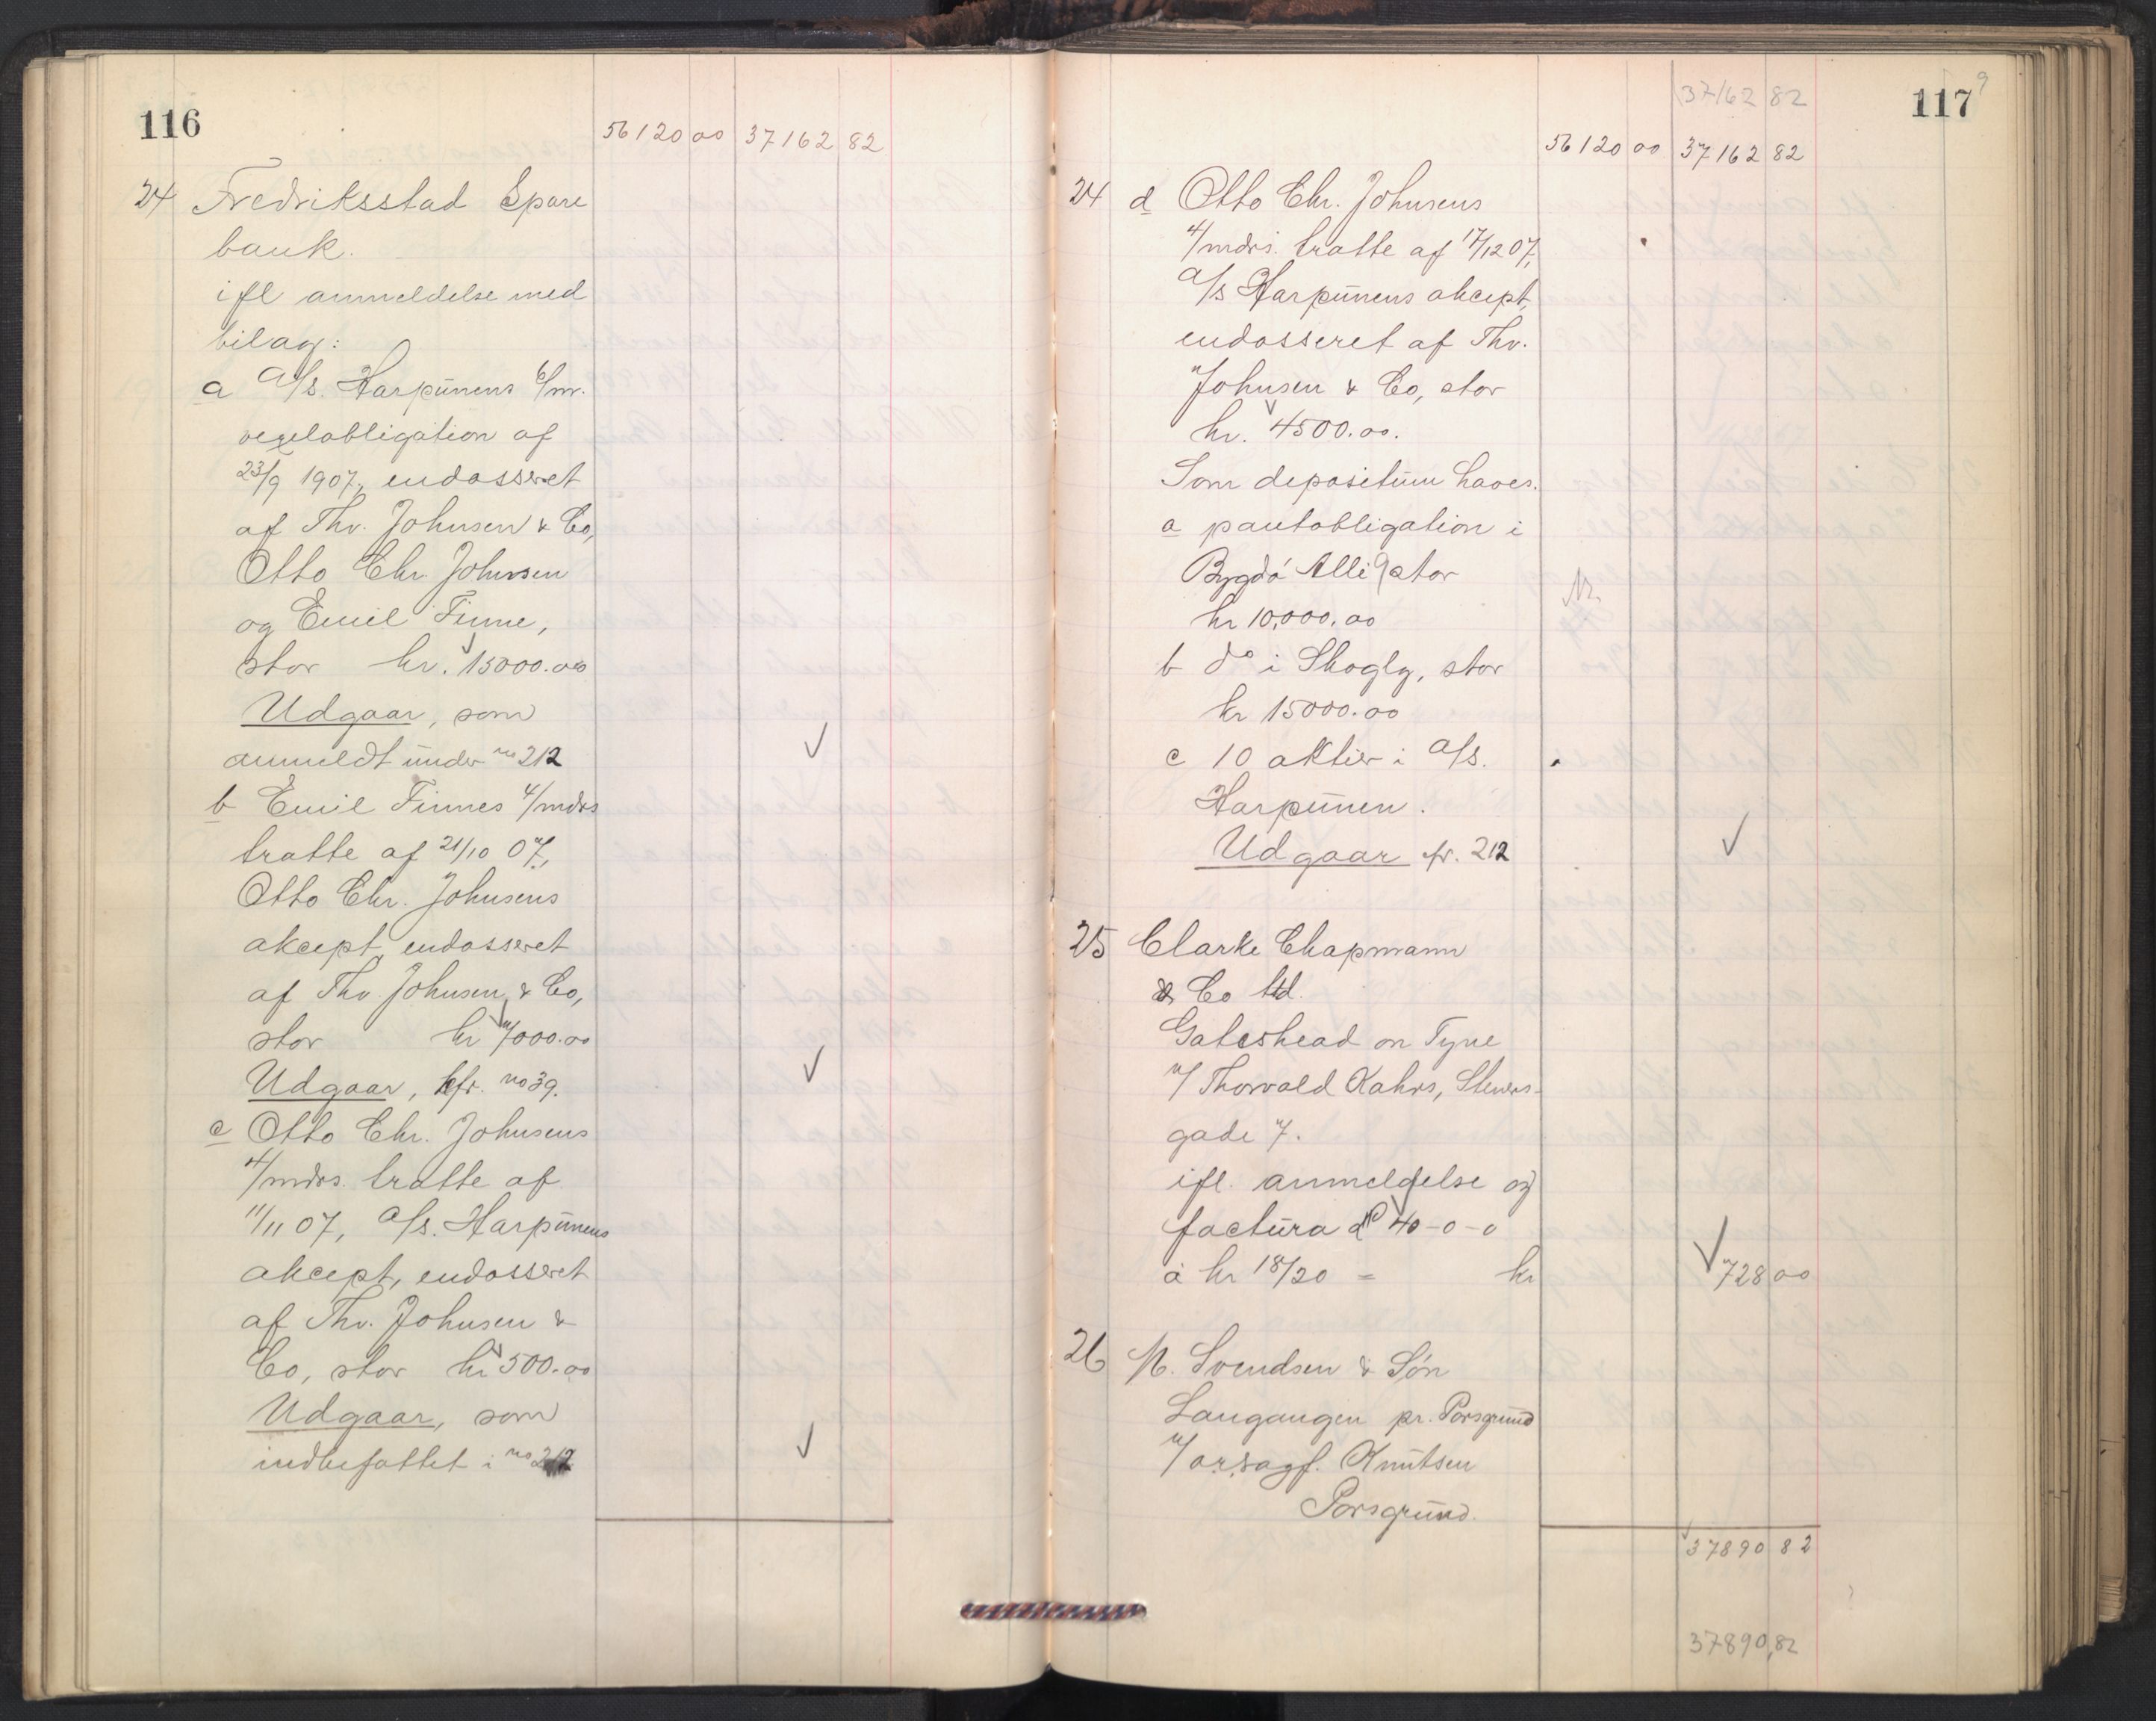 116
56120 00 37162 82
24 Fredriksstad Spare
bank.
ifl anmeldelse med
bilag:
a A/S. Harpunens 6/m.
vexelobligation af
23/9 1907, endosseret
af Thv. Johnsen & Co,
Otto Chr. Johnsen
og Emil Finne,
stor kr. 15000.00
Udgaar, som
anmeldt under no 212
b Emil Finnes 4/mdrs
tratte af 21/10 07,
Otto Chr. Johnsens
akcept, endosseret
af Thv. Johnsen & Co,
stor kr 7000.00
Udgaar, kfr. no 39.
c Otto Chr. Johnsens
4/mdrs. tratte af
11/11 07, A/S. Harpunens
akcept, endosseret
af Thv. Johnsen &
Co, stor kr 500.00
Udgaar, som
indbefattet i no 212
117
37162 82
56120 00 37162 82
24 d Otto Chr. Johnsens
4/mdrs. tratte af 17/12 07,
A/S Harpunens akcept,
endosseret af Thv.
Johnsen & Co, stor
kr. 4500.00.
Som depositum haves.
a pantobligation i
Bygdö Allé 9 stor
kr 10,000.00
b do i Skogly, stor
kr 15000.00
c 10 aktier i A/S.
Harpunen.
Udgaar fr. 212
25 Clarke Chapmann
& Co ltd.
Gateshead on Tyne
v/ Thorvald Kahrs, Steners-
gade 7.
ifl. anmeldelse og
factura 40-0-0
á kr 18/20 = kr 728 00
26 N. Svendsen & Sön
Langangen pr. Porsgrund
v/ o.r.sagf. Knutsen
Porsgrund.
37890 82
37890,82